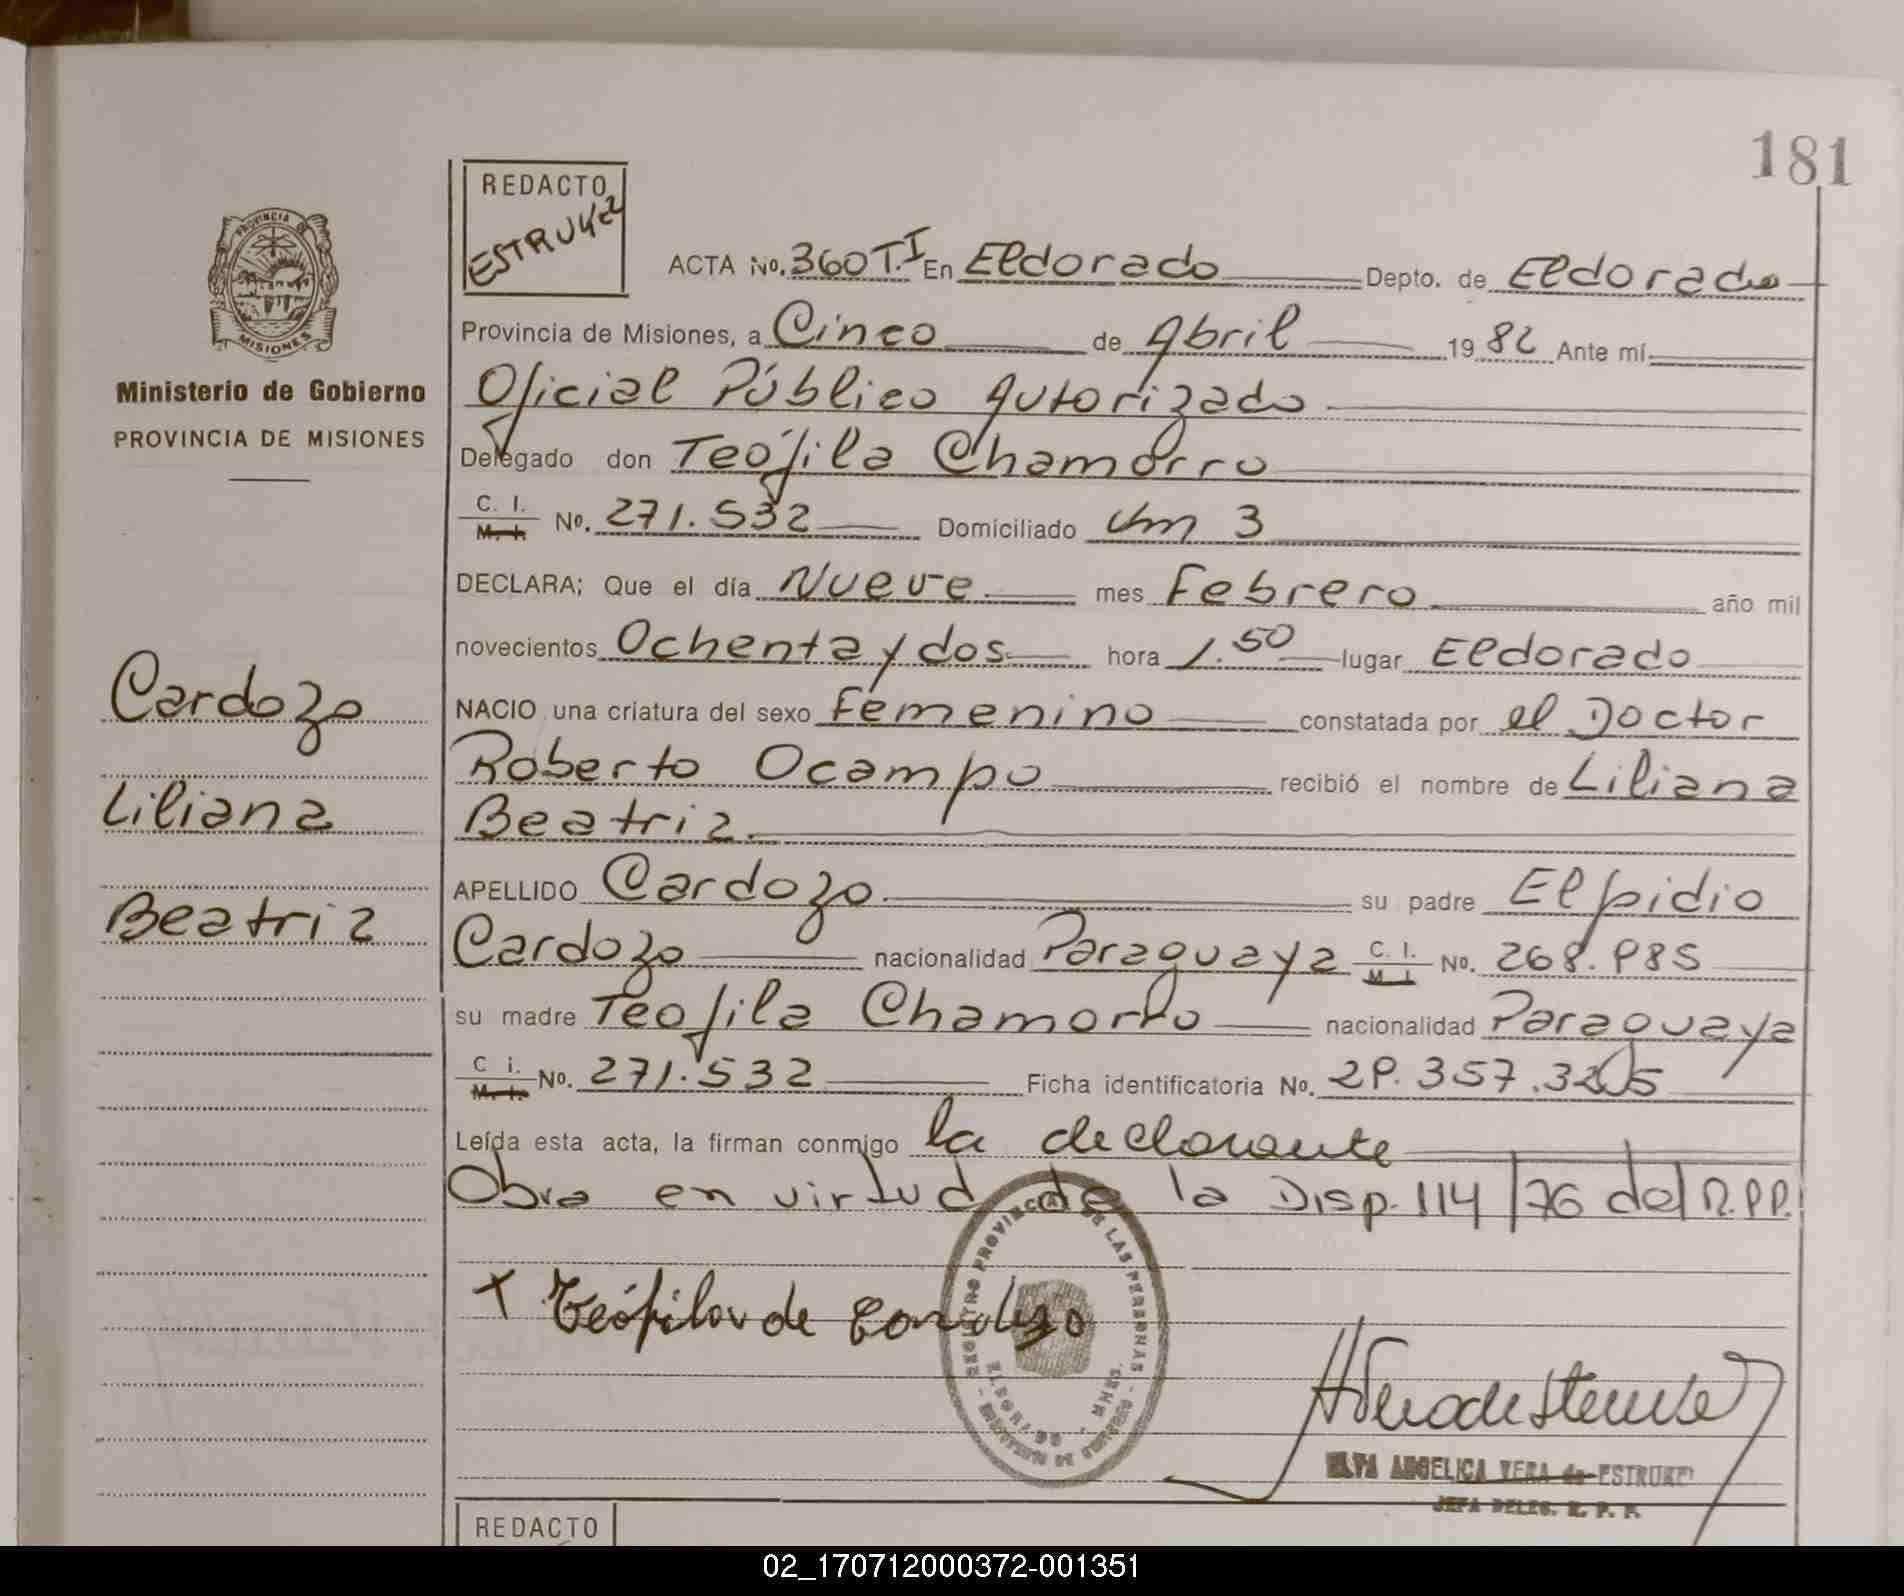 181
REDACTO
ACTA No. 360 T.I En Eldorado Depto. de Eldorado
Provincia de Misiones, a Cinco de Abril 1982 Ante mí
Oficial Público Autorizado
Delegado don Teófila Chamorro
C. I. M. I. No. 271.532 Domiciliado Km 3
DECLARA; Que el día Nueve mes Febrero año mil
novecientos Ochenta y dos hora 1.50 lugar Eldorado
NACIO una criatura del sexo Femenino constatada por el Doctor
Roberto Ocampo recibió el nombre de Liliana
Beatriz
APELLIDO Cardozo su padre Elpidio
Cardozo nacionalidad Paraguaya C. I. M. I. No. 268.985
su madre Teofila Chamorro nacionalidad Paraguaya
C i. M. I. No. 271.532 Ficha identificatoria No.
Leída esta acta, la firman conmigo la declarante
Obra en virtud de la Disp. 114/76 del R.P.P.
+ Teófila de Cardozo
PROVINCIA DE MISIONES
Ministerio de Gobierno
PROVINCIA DE MISIONES
Cardozo
Liliana
Beatriz
REGISTRO PROVINCIAL DE LAS PERSONAS
ANGELICA VERA de ESTRUKEL
JEFA DELEG. R. P. P.
REDACTO
02_170712000372-001351